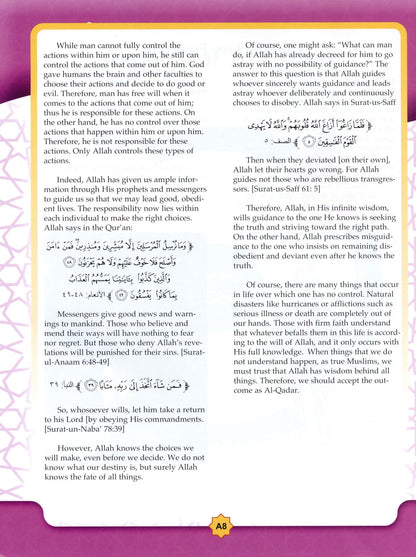 While man cannot fully control the
actions within him or upon him, he still can
control the actions that come out of him. God
gave humans the brain and other faculties to
choose their actions and decide to do good or
evil. Therefore, man has free will when it
comes to the actions that come out of him;
thus he is responsible for these actions. On
the other hand, he has no control over those
actions that happen within him or upon him.
Therefore, he is not responsible for these
actions. Only Allah controls these types of
actions.
Indeed, Allah has given us ample infor-
mation through His prophets and messengers
to guide us so that we may lead good, obedi-
ent lives. The responsibility now lies within
each individual to make the right choices.
Allah says in the Qur'an:
﴿ وَمَا نُرْسِلُ ٱلْمُرْسَلِينَ إِلَّا مُبَشِّرِينَ وَمُنذِرِينَ فَمَنْ ءَامَنَ
وَأَصْلَحَ فَلَا خَوْفٌ عَلَيْهِمْ وَلَا هُمْ يَحْزَنُونَ ٤٨
وَٱلَّذِينَ كَذَّبُوا۟ بِـَٔايَٰتِنَا يَمَسُّهُمُ ٱلْعَذَابُ
بِمَا كَانُوا۟ يَفْسُقُونَ ٤٩ ﴾ الأنعام: ٤٨-٤٩
Messengers give good news and warn-
ings to mankind. Those who believe and
mend their ways will have nothing to fear
nor regret. But those who deny Allah's reve-
lations will be punished for their sins. [Surat-
ul-Anaam 6:48-49]
﴿ فَمَن شَآءَ ٱتَّخَذَ إِلَىٰ رَبِّهِۦ مَـَٔابًا ٣٩ ﴾ النبأ: ٣٩
So, whosoever wills, let him take a return
to his Lord [by obeying His commandments.
[Surat-un-Naba' 78:39]
However, Allah knows the choices we
will make, even before we decide. We do not
know what our destiny is, but surely Allah
knows the fate of all things.
Of course, one might ask: "What can man
do, if Allah has already decreed for him to go
astray with no possibility of guidance?" The
answer to this question is that Allah guides
whoever sincerely wants guidance and leads
astray whoever deliberately and continuously
chooses to disobey. Allah says in Surat-us-Saff
﴿ فَلَمَّا زَاغُوٓا۟ أَزَاغَ ٱللَّهُ قُلُوبَهُمْ ۚ وَٱللَّهُ لَا يَهْدِى
ٱلْقَوْمَ ٱلْفَٰسِقِينَ ٥ ﴾ الصف: ٥
Then when they deviated [on their own],
Allah let their hearts go wrong. For Allah
guides not those who are rebellious transgres-
sors. [Surat-us-Saff 61: 5]
Therefore, Allah, in His infinite wisdom,
wills guidance to the one He knows is seeking
the truth and striving toward the right path.
On the other hand, Allah prescribes misguid-
ance to the one who insists on remaining dis-
obedient and deviant even after he knows the
truth.
Of course, there are many things that occur
in life over which one has no control. Natural
disasters like hurricanes or afflictions such as
serious illness or death are completely out of
our hands. Those with firm faith understand
that whatever befalls them in this life is accord-
ing to the will of Allah, and it only occurs with
His full knowledge. When things that we do
not understand happen, as true Muslims, we
must trust that Allah has wisdom behind all
things. Therefore, we should accept the out-
come as Al-Qadar.
A8